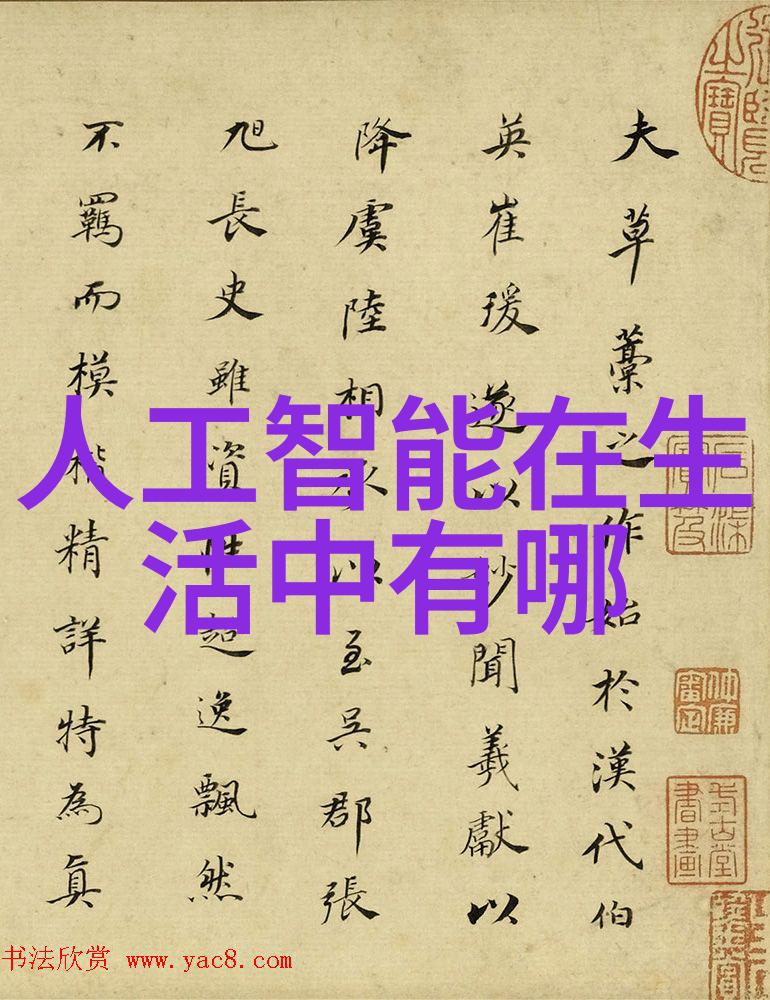 夫草藁之作始於漢代伯
英崔瑗遂以妙聞羲獻以
降虞陸相承以至吳郡張
旭長史雖資性超逸飄然
不羈而模楷精詳特為真
人工智能在生
活中有哪
书法欣赏 www.yac8.com